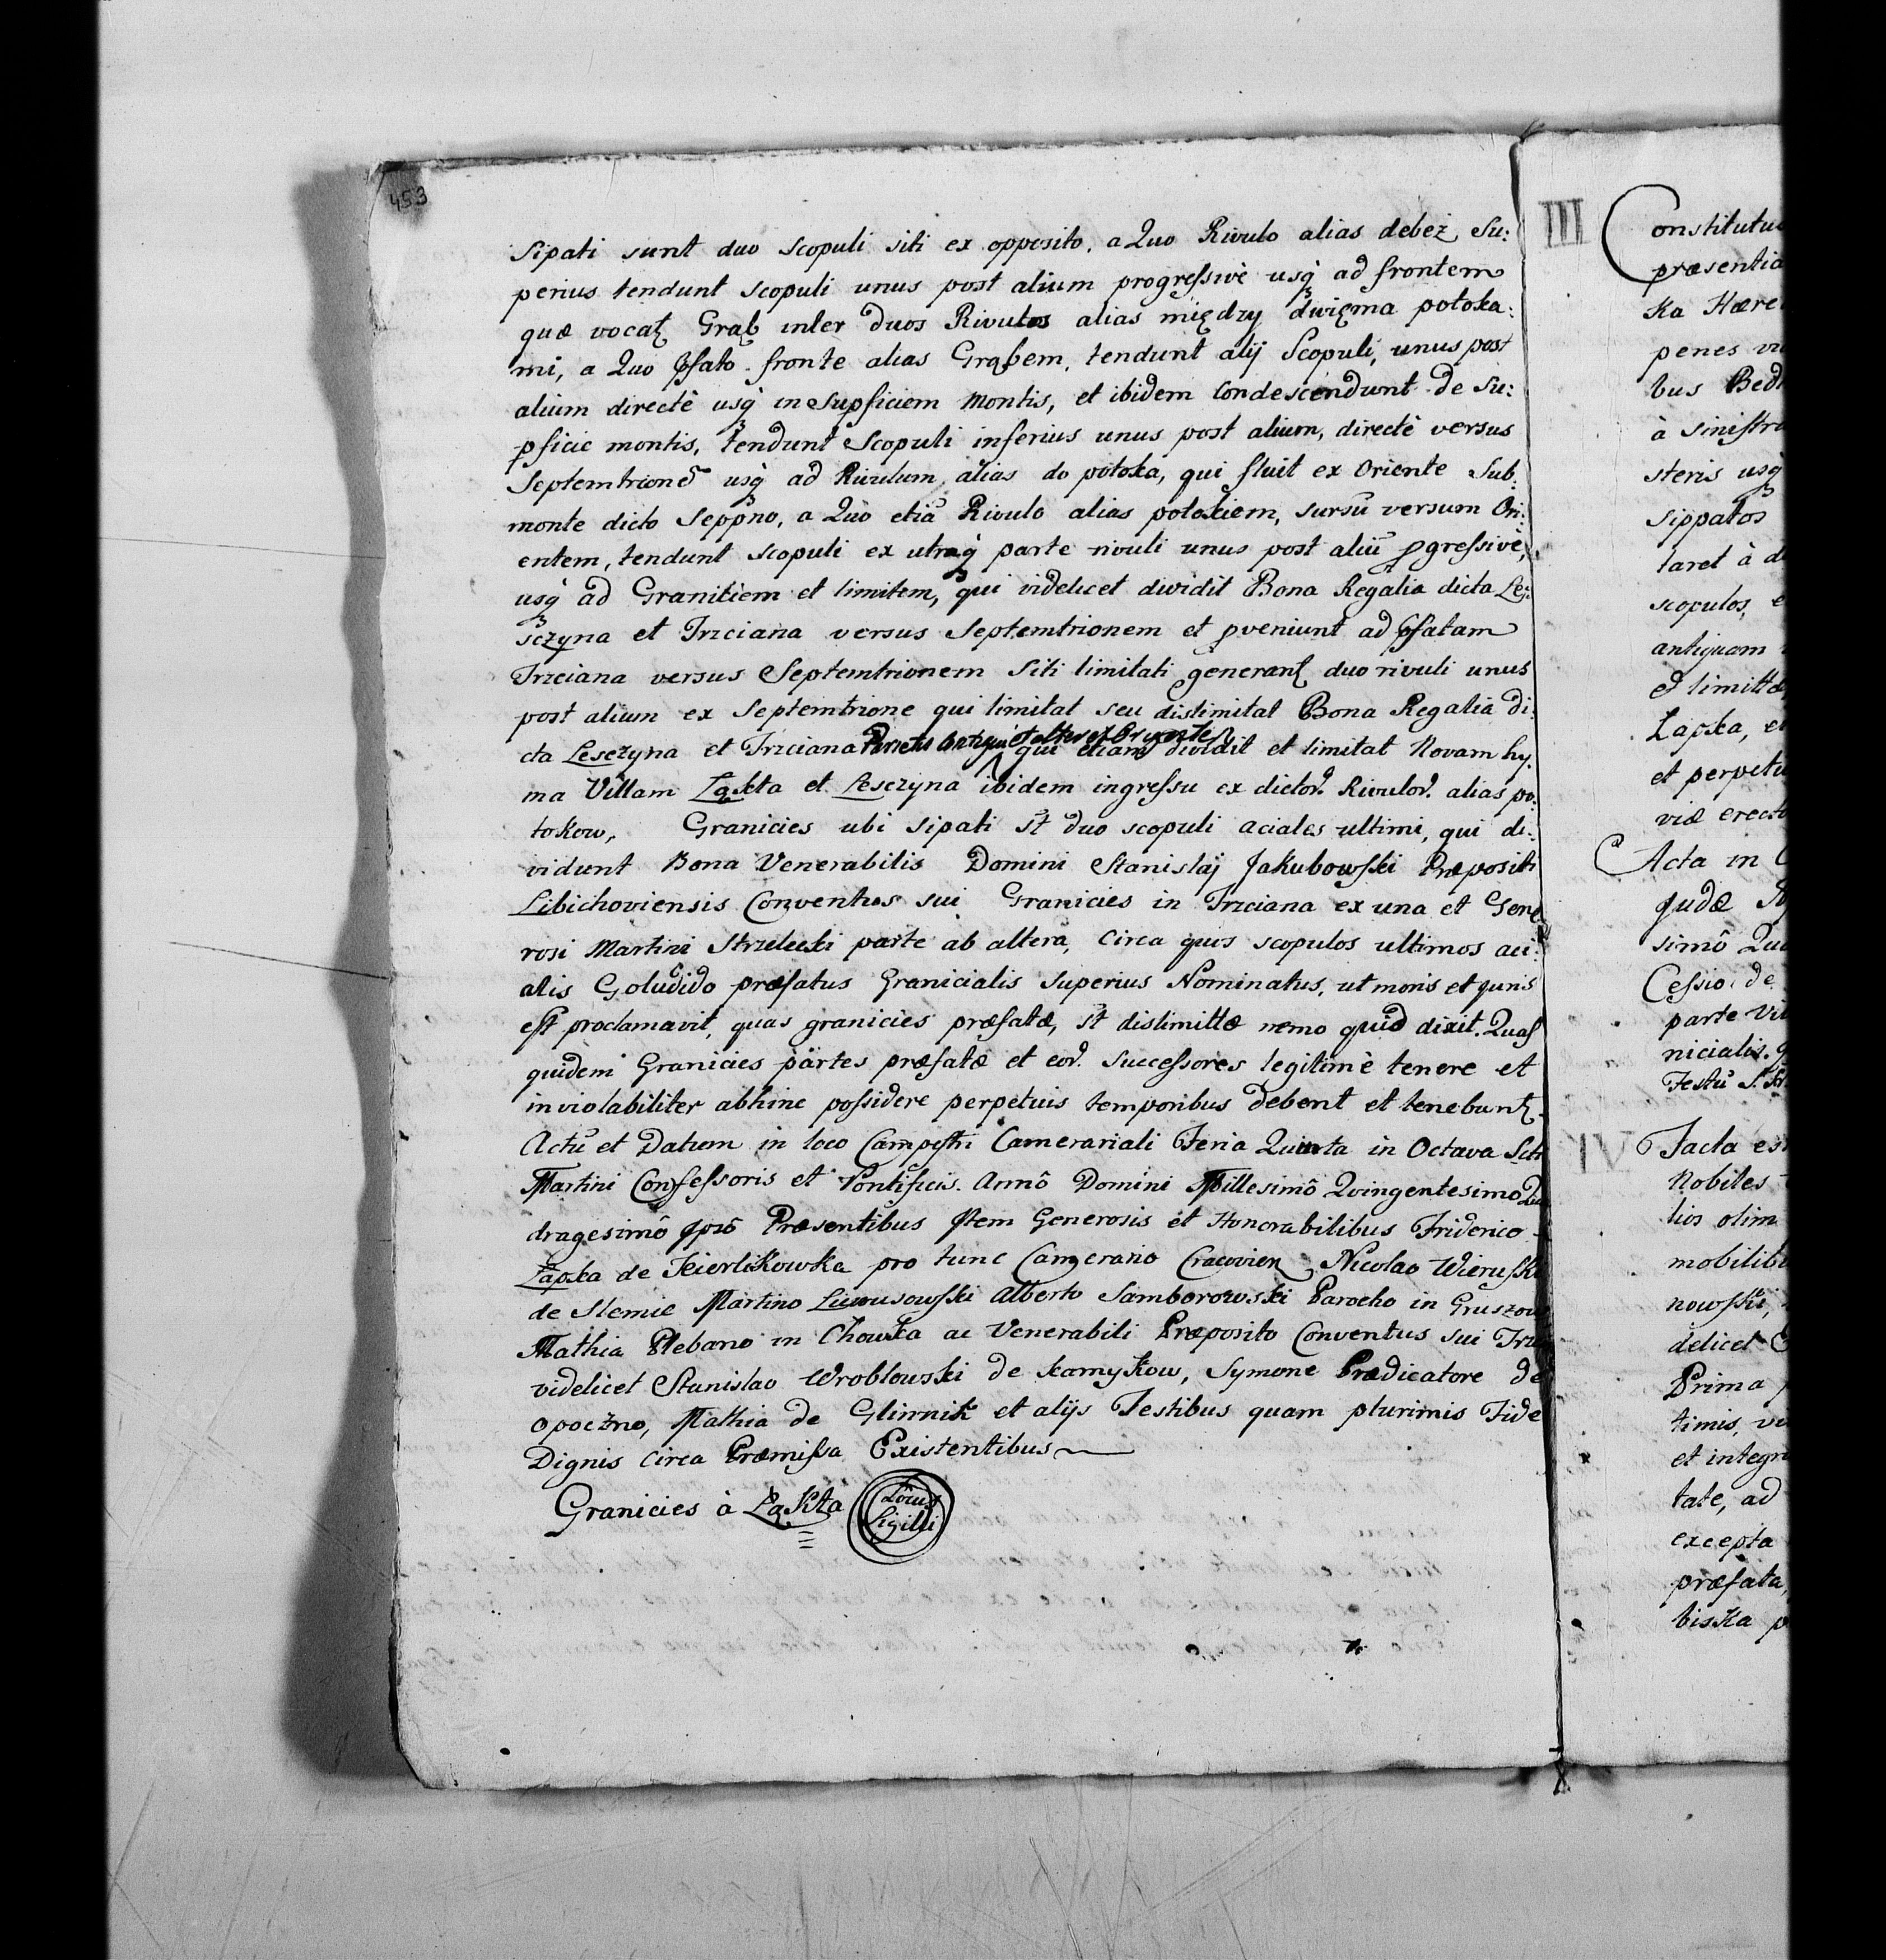 453
Sipati sunt duo scopuli siti ex opposito, a Quo Rivulo alias debez Su:
perius tendunt scopuli unus post alium progressivè usq ad frontem
quæ vocat Grab inter duos Rivulos alias między dwięma potoka:
mi, a Quo pfato fronte alias Grąbem, tendunt alij Scopuli, unus post
alium directè usq in Supficiem montis, et ibidem Condescendunt de Su:
pficie montis, tendunt Scopuli inferius unus post alium, directè versus
Septemtrionē usq ad Rivulum alias do potoka, qui fluit ex Oriente Sub
monte dicto Seppno, a Quo etiā Rivulo alias potokiem, sursū versum Ori:
entem, tendunt scopuli ex utraq parte rivuli unus post aliū pgressivè,
usq ad Granitiem et limitem, qui videlicet dividit Bona Regalia dicta Le:
sczyna et Trzciana versus Septemtrionem et pveniunt ad pfatam
Trzciana versus Septemtrionem Siti limitati generant duo rivuli unus
post alium ex Septemtrione qui limitat seu distimitat Bona Regalia di:
et alter ex Oryente
cta Lesczyna et Trzciana Parietis Antiqui qui etiam dividit et limitat Novam hy.
ma Villam Łąkta et Lesczyna ibidem ingressu ex dictor. Rivulor. alias po:
tokow, Granicies ubi sipati st duo scopuli aciales ultimi, qui di:
vidunt Bona Venerabilis Domini Stanislaj Jakubowski Præpositi
Libichoviensis Conventus sui Granicies in Trzciana ex una et Gene
rosi Martini Strzelecki parte ab altera, Circa quos scopulos ultimos aci:
alis præfatus Granicialis Superius Nominatus, ut moris et juris
est proclamavit, quas granicies præfatæ, st distimittæ nemo quid dixit. Quas
quidem Granicies pärtes præfatæ et eor. successores legitimè tenere et
inviolabiliter abhinc possidere perpetuis temporibus debent et tenebunt.
Actū et Datum in loco Campestri Camerariali Feria Quinta in Octava Scti
Martini Confessoris et Pontificis. Annô Domini Millesimô Quingentesimo Qua
dragesimô Præsentibus Item Generosis et Honorabilibus Friderico
Łapka de Kierlikowka pro tunc Camerario Cracovien Nicolao Wieruski
de Slemie Martino Alberto Samborowski Parocho in Gruszow
Mathia Plebano in Chowka ac Venerabili Præposito Conventus sui
videlicet Stanislao Wroblowski de kamykow, Symone Prædicatore de
opoczno, Mathia de Glinnik et alijs Testibus quam plurimis Fide
Dignis Circa Præmissa Existentibus
Granicies à Łąkta
Locus
Sigilli
III
Constitutu
præsentia
ka Hære
penes
bus
à sinistra
steris usq
Sippatos
taret à
scopulos,
antiquam
et
Łapka,
et perpetu
viæ erect
Acta in
judæ
simô Qua
Cessio de
parte
nicialis.
IV
Facta es
Nobiles
lios olim
mobilib
nowski,
delicet
Prima
timis,
et integr
tate, ad
excepta
præfata,
biska